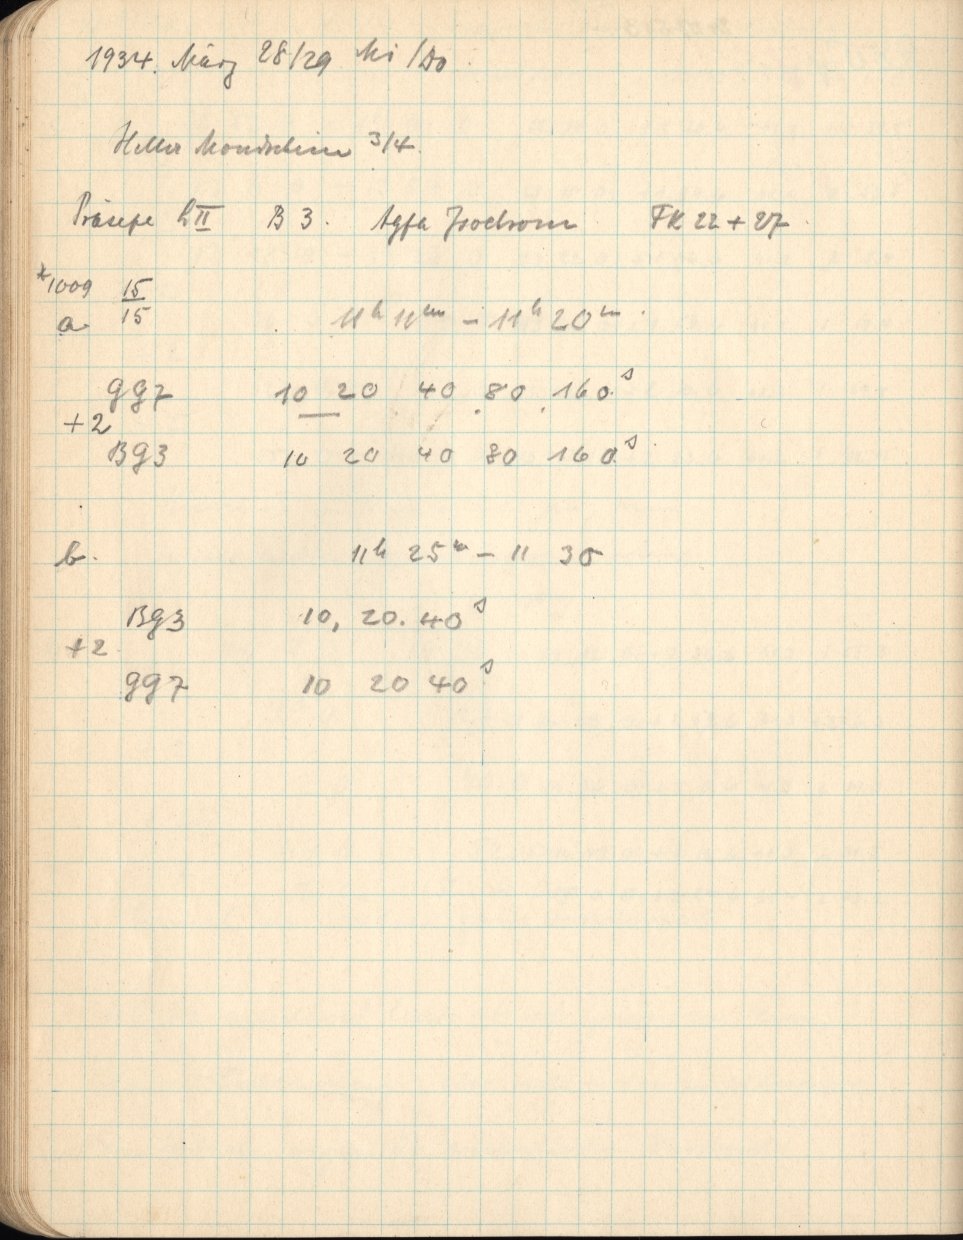 1934. März 28/29 Mi/Do
Heller Mondschein 3/4.
Präsepe h II B 3. Agfa Isochrom FK 22 + 27.
*1009 15/15
a 11h 11m – 11h 20m.
gg7 10 20 40 80 160s
+2
Bg3 10 20 40 80 160s
b. 11h 25m – 11 30
Bg3 10, 20. 40s
+2
gg7 10 20 40s